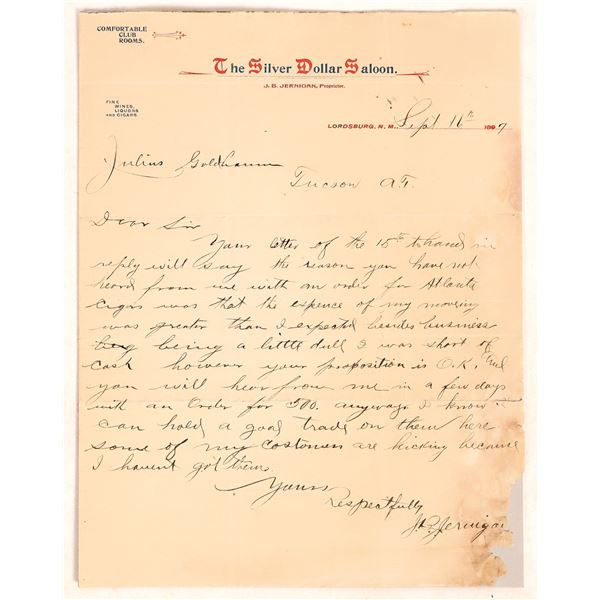 COMFORTABLE
CLUB
ROOMS.
The Silver Dollar Saloon.
J. B. JERNIGAN, Proprietor.
FINE
WINES,
LIQUORS
AND CIGARS.
LORDSBURG, N. M., Sept 16th 1897
Julius Goldbaum
Tucson A.T.
Dear Sir
Your letter of the 15th to hand in
reply will say the reason you have not
heard from me with an order for Atlanta
Cigrs was that the expence of my moveing
was greater than I expected besides business
being a little dull I was short of
cash however your proposition is O.K. and
you will hear from me in a few days
with an Order for 500. anyway. I know I
can hold a good trade on them here
some of my costomers are kicking because
I havent got them
Yours
Respectfully
J.B. Jernigan